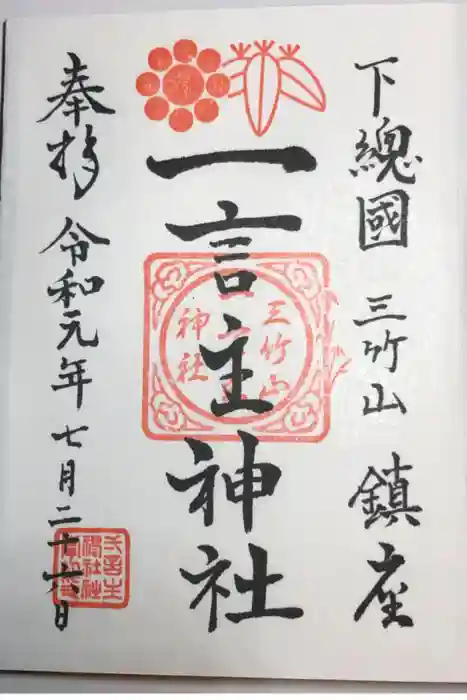 下總國 三竹山 鎮座
一言主神社
三竹山
神社
奉拝 令和元年 七月二十六日